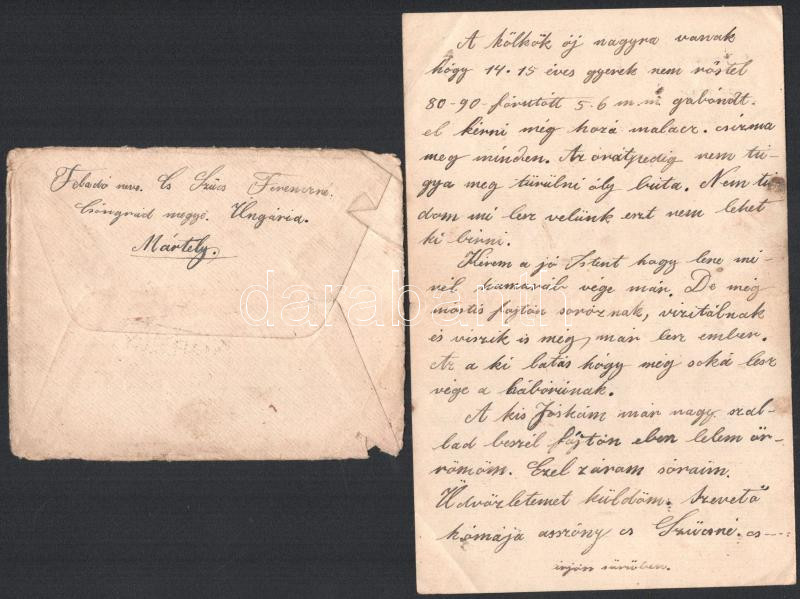 Feladó neve. Cs Szűcs Ferencné.
Csóngrád megye. Üngária.
Mártély.
A kölkök ój nagyra vanak
hógy 14-15 éves gyerek nem röstel
80-90-fórutótt 5-6 m.m. gabóndt.
el kérni még hozá malacz. csizma
meg minden. Az órátpedig nem tü-
gya meg türülni óly búta. Nem tü-
dom mi lesz velünk eszt nem lehet
ki birni.
Kérem a jó Istent hagy lene mi-
vél hamaráb vége már. De még
mostis fójtón soróznak, vizitálnak
és viszik is még, már lesz ember.
Az a ki latás hógy még soká lesz
vége a háborúnak.
A kis Jóskám már nagy szal-
lad beszél fójtón eben lelem ör-
römöm. Ezel záram sóraim.
Üdvözletemet küldöm. Szevető
kómája asszóny cs Szűcsné. cs
irjón sürüben.
darabanth